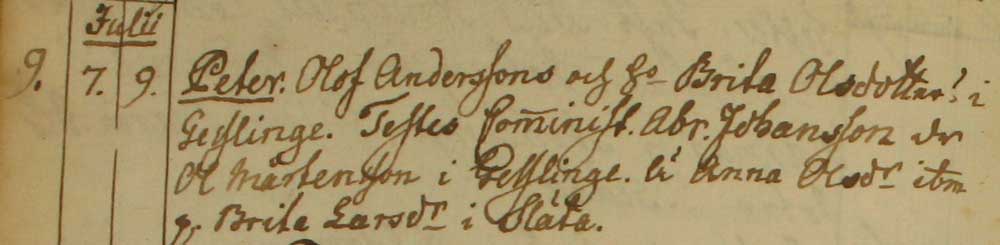 Julii
9. 7. 9. Peter. Olof Anderssons och h° Brita Olsdotters i
Gesslinge. Testes Comminist. Abr. Johansson dr
Ol Mårtensson i Gesslinge. Anna Olsdr itm
p. Brita Larsdr i Släta.